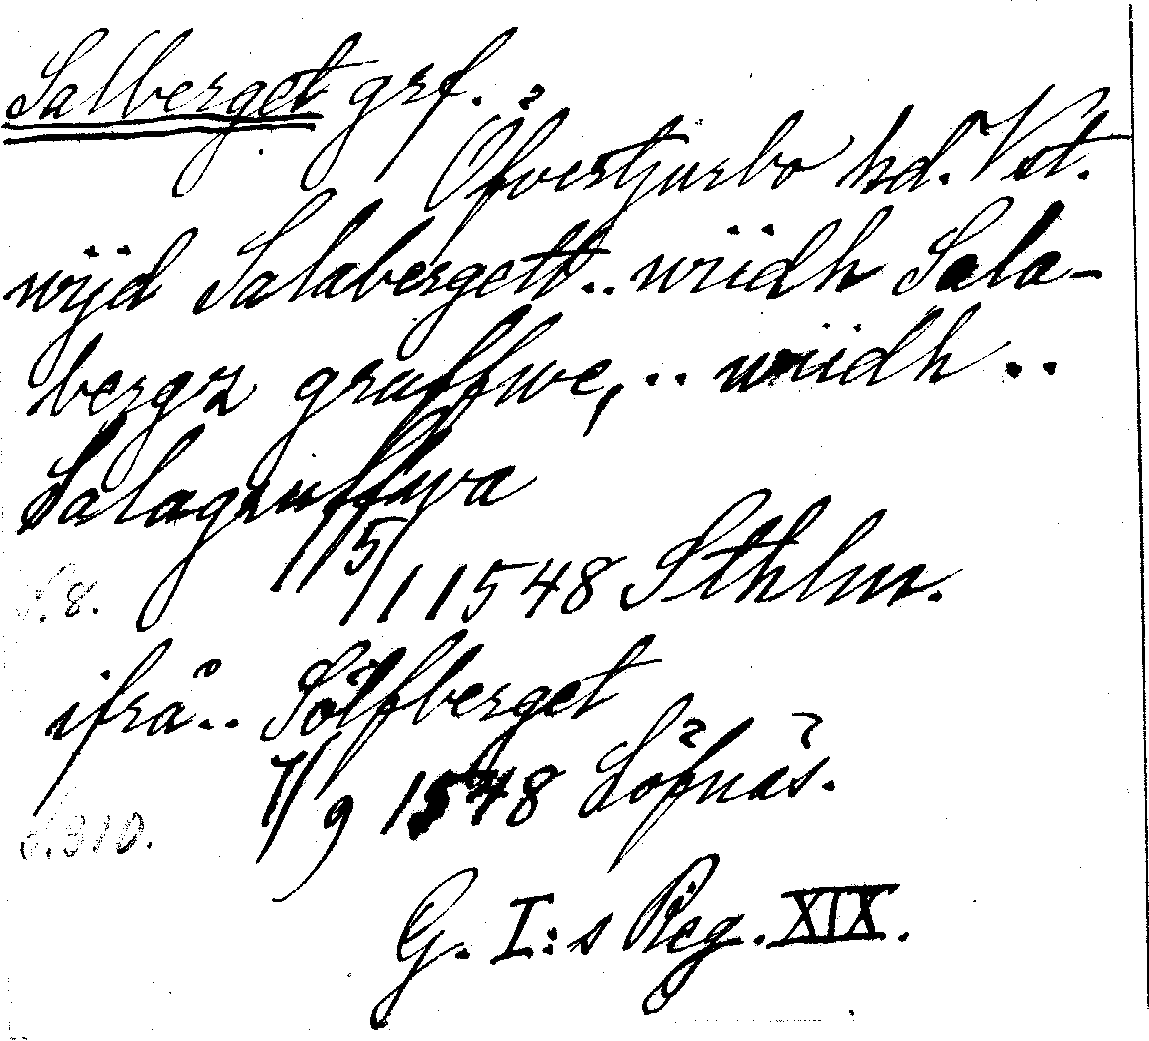 Salberget grf.
Öfvertjurbo hd. Vst.
wijd Salabergett.. wiidh Sala-
bergz gruffwe, .. wiidh ..
Salagruffwa
15/1 1548 Sthlm.
S. 8.
ifrå.. Sölfberget
7/9 1548 Löfnäs.
S. 310.
G. I:s Reg. XIX.